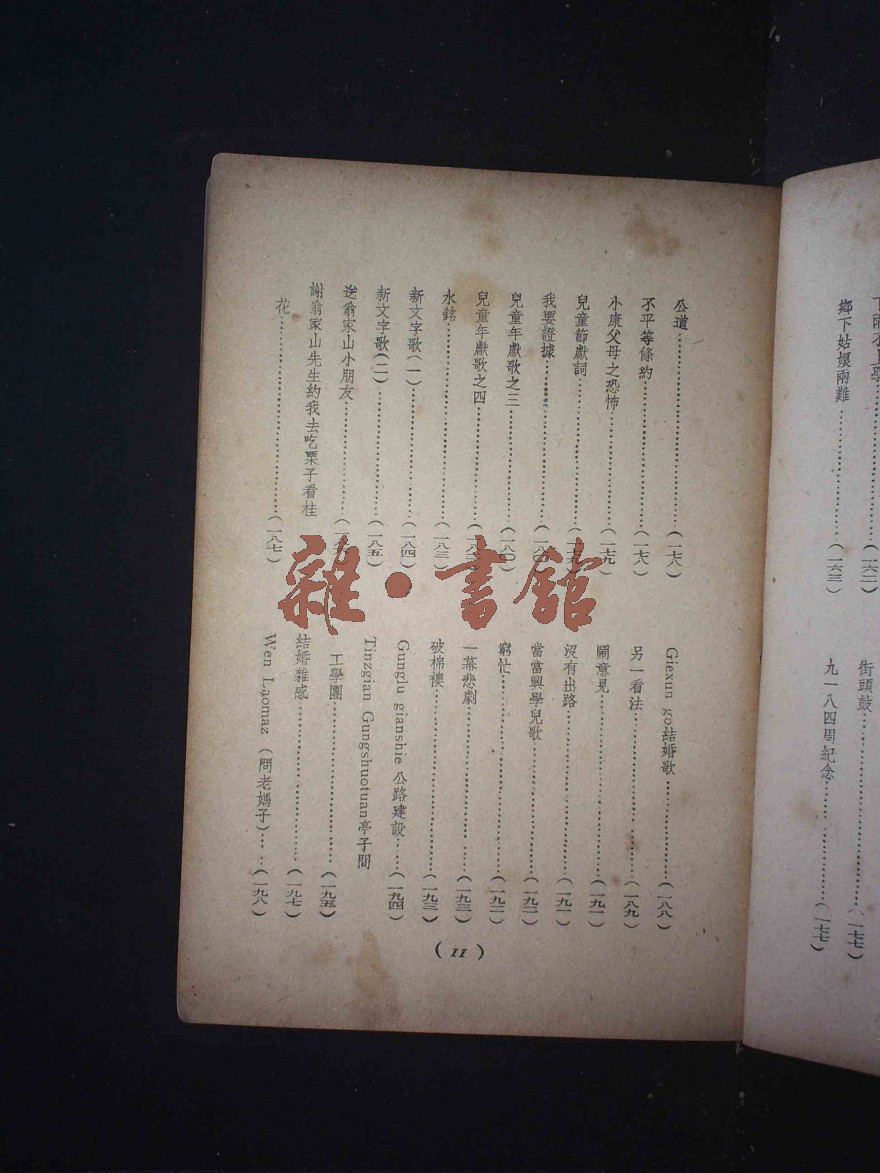 鄉下姑娘兩難………(一六三)
街頭鼓………(一七七)
九一八四周紀念………(一七七)
公道………(一七八)
不平等條約………(一七八)
小康父母之恐怖………(一七九)
兒童節獻詞………
我要證據………(一八〇)
兒童年獻歌之三………(一八〇)
兒童年獻歌之四………
水銘………(一八三)
新文字歌(一)………(一八四)
新文字歌(二)………(一八五)
送翁家山小朋友………
謝翁家山先生約我去吃栗子看桂
花………(一八七)
Giexun go結婚歌………(一八八)
另一看法………(一八九)
鬧意見………(一九一)
沒有出路………(一九一)
當當興學兒歌………(一九二)
窮忙………(一九二)
一幕悲劇………(一九三)
破棉襖………(一九三)
Gunglu gianshie 公路建設……(一九四)
Tinzgian Gungshuotuan亭子間
工學團………(一九五)
結婚雜感………(一九七)
Wen Laomaz (問老媽子)……(一九八)
(11)
雜·書館